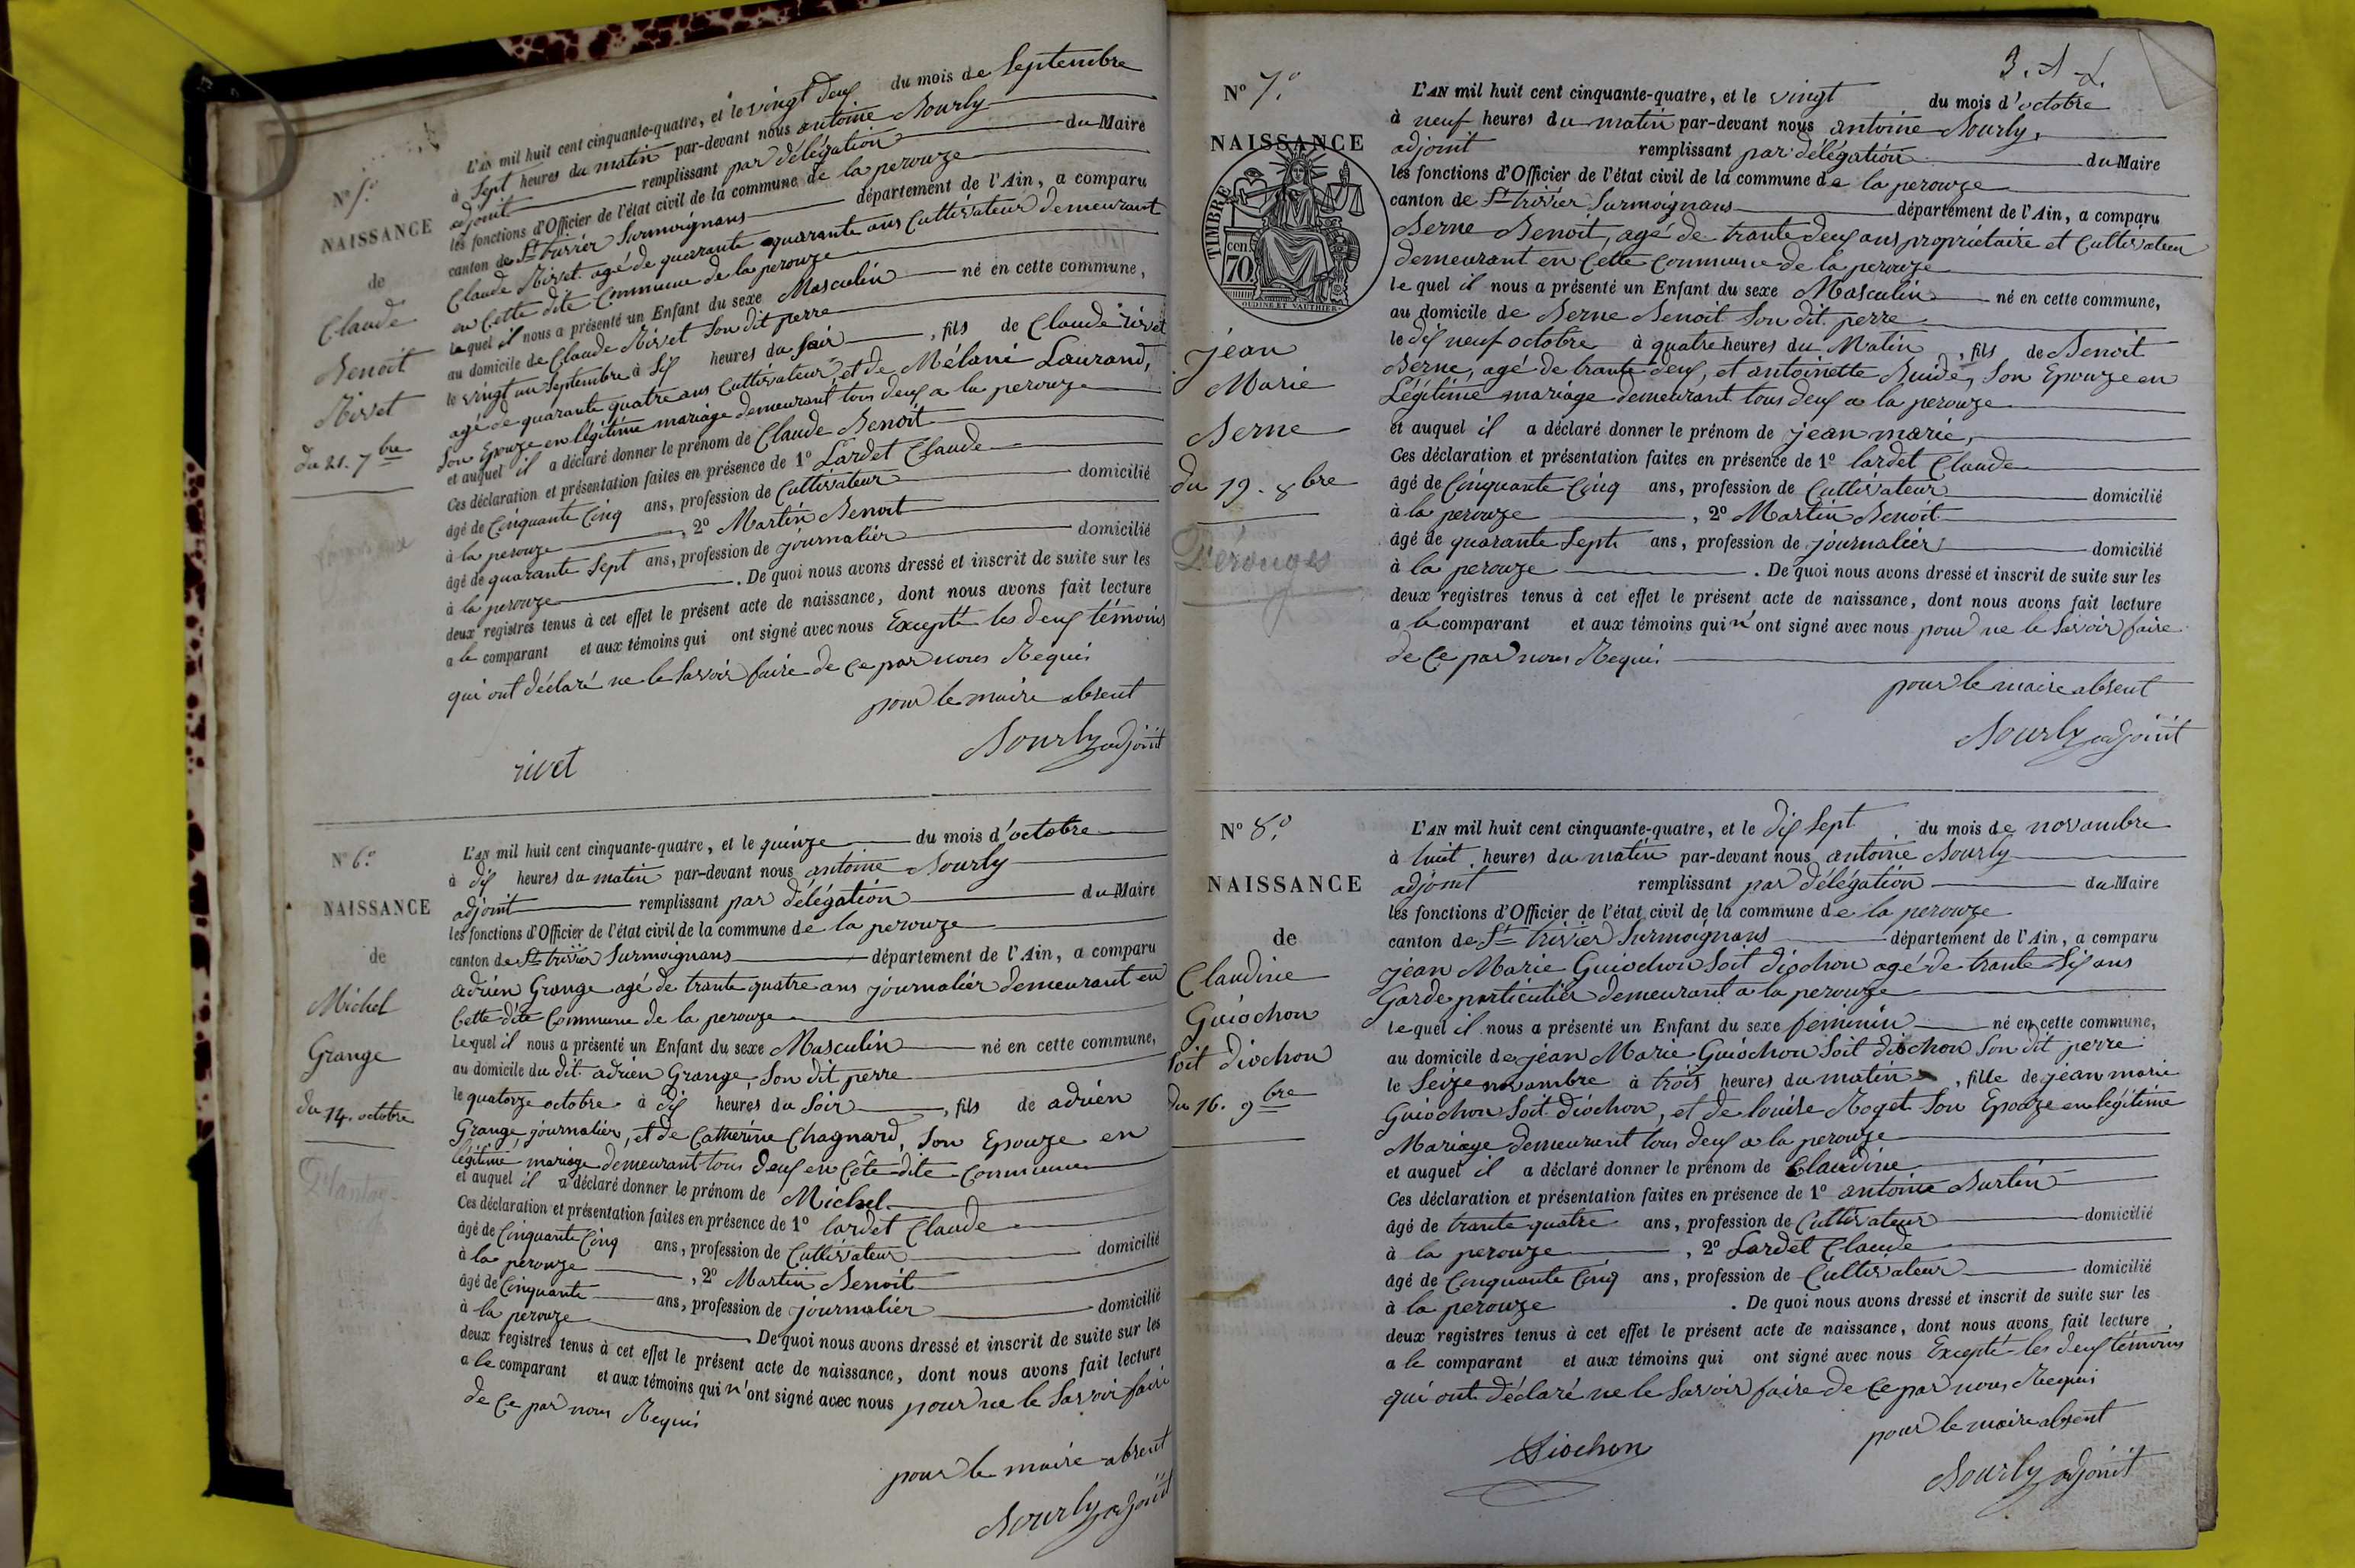 N° 5°
NAISSANCE
de
Claude
Benoit
Rivet
du 21. 7bre
L'AN mil huit cent cinquante-quatre, et le vingt deux du mois de Septembre
à Sept heures du matin par-devant nous antoine Bourly
adjoint remplissant par délégation du Maire
les fonctions d'Officier de l'état civil de la commune de la perouze
canton de St trivier Surmoignans département de l'Ain, a comparu
Claude Rivet agé de quarante quarante ans Cultivateur demeurant
en Cette dite Commune de la perouze
lequel il nous a présenté un Enfant du sexe Masculin né en cette commune,
au domicile de Claude Rivet Son dit perre
le vingt un Septembre à Six heures du Soir, fils de Claude rivet
agé de quarante quatre ans Cultivateur et de Mélani Laurand,
Son Epouze en légitime mariage demeurant tous deux a la perouze
et auquel il a déclaré donner le prénom de Claude Benoit
Ces déclaration et présentation faites en présence de 1° Lardet Claude
âgé de Cinquante Cinq ans, profession de Cultivateur domicilié
à la perouze, 2° Martin Benoit
âgé de quarante Sept ans, profession de journalier domicilié
à la perouze. De quoi nous avons dressé et inscrit de suite sur les
deux registres tenus à cet effet le présent acte de naissance, dont nous avons fait lecture
a le comparant et aux témoins qui ont signé avec nous Excepté les deux témoins
qui ont déclaré ne le Savoir faire de Ce par nous Requis
pour le maire absent
rivet Bourly adjoint
N° 6°
NAISSANCE
de
Michel
Grange
du 14. octobre
L'AN mil huit cent cinquante-quatre, et le quinze du mois d'octobre
à dix heures du matin par-devant nous antoine Bourly
adjoint remplissant par délégation du Maire
les fonctions d'Officier de l'état civil de la commune de la perouze
canton de St trivier Surmoignans département de l'Ain, a comparu
adrien Grange agé de trante quatre ans journalier demeurant en
Cette dite Commune de la perouze
Lequel il nous a présenté un Enfant du sexe Masculin né en cette commune,
au domicile du dit adrien Grange, Son dit perre
le quatorze octobre à dix heures du Soir, fils de adrien
Grange, journalier, et de Catherine Chagnard, Son Epouze en
légitime mariage demeurant tous deux en Cête dite Commune
et auquel il a déclaré donner le prénom de Michel
Ces déclaration et présentation faites en présence de 1° lardet Claude
âgé de Cinquante Cinq ans, profession de Cultivateur domicilié
à la perouze, 2° Martin Benoit
âgé de Cinquante ans, profession de journalier domicilié
à la perouze. De quoi nous avons dressé et inscrit de suite sur les
deux registres tenus à cet effet le présent acte de naissance, dont nous avons fait lecture
a le comparant et aux témoins qui n'ont signé avec nous pour ne le Savoir faire
de Ce par nous Requis
pour le maire absent
Bourly adjoint
N° 7°
NAISSANCE
TIMBRE
70 cen
OUDINE ET VAUTHIER
jean
Marie
Berne
du 19. 8bre
Pérouges
L'AN mil huit cent cinquante-quatre, et le vingt du mois d'octobre
à neuf heures du matin par-devant nous antoine Bourly,
adjoint remplissant par délégation du Maire
les fonctions d'Officier de l'état civil de la commune de la perouze
canton de St trivier Surmoignans département de l'Ain, a comparu
Berne Benoit, agé de trante deux ans propriétaire et Cultivateur
demeurant en Cette Commune de la perouze
lequel il nous a présenté un Enfant du sexe Masculin né en cette commune,
au domicile de Berne Benoit Son dit perre
le dix neuf octobre à quatre heures du Matin, fils de Benoit
Berne, agé de trante deux, et antoinette Buide, Son Epouze en
Légitime mariage demeurant tous deux a la perouze
et auquel il a déclaré donner le prénom de jean marie,
Ces déclaration et présentation faites en présence de 1° lardet Claude
âgé de Cinquante Cinq ans, profession de Cultivateur domicilié
à la perouze, 2° Martin Benoit
âgé de quarante Sept ans, profession de journalier domicilié
à la perouze. De quoi nous avons dressé et inscrit de suite sur les
deux registres tenus à cet effet le présent acte de naissance, dont nous avons fait lecture
a le comparant et aux témoins qui n'ont signé avec nous pour ne le Savoir faire
de Ce par nous Requis
pour le maire absent
Bourly adjoint
N° 8°
NAISSANCE
de
Claudine
Guiochon
Soit diochon
du 16. 9bre
L'AN mil huit cent cinquante-quatre, et le dix Sept du mois de novambre
à huit heures du matin par-devant nous antoine Bourly
adjoint remplissant par délégation du Maire
les fonctions d'Officier de l'état civil de la commune de la perouze
canton de St trivier Surmoignans département de l'Ain, a comparu
jean Marie Guiochon Soit diochon agé de trante Six ans
Garde particulier demeurant a la perouze
lequel il nous a présenté un Enfant du sexe feminin né en cette commune,
au domicile de jean Marie Guiochon Soit diochon Son dit perre
le Seize novambre à trois heures du matin, fille de jean marie
Guiochon Soit diochon, et de louise Roget Son Epouze en légitime
Mariage demeurant tous deux a la perouze
et auquel il a déclaré donner le prénom de Claudine
Ces déclaration et présentation faites en présence de 1° antoine Burtin
âgé de trante quatre ans, profession de Cultivateur domicilié
à la perouze, 2° Lardet Claude
âgé de Cinquante Cinq ans, profession de Cultivateur domicilié
à la perouze. De quoi nous avons dressé et inscrit de suite sur les
deux registres tenus à cet effet le présent acte de naissance, dont nous avons fait lecture
a le comparant et aux témoins qui ont signé avec nous Excepté les deux témoins
qui ont déclaré ne le Savoir faire de Ce par nous Requis
pour le maire absent
Diochon Bourly adjoint